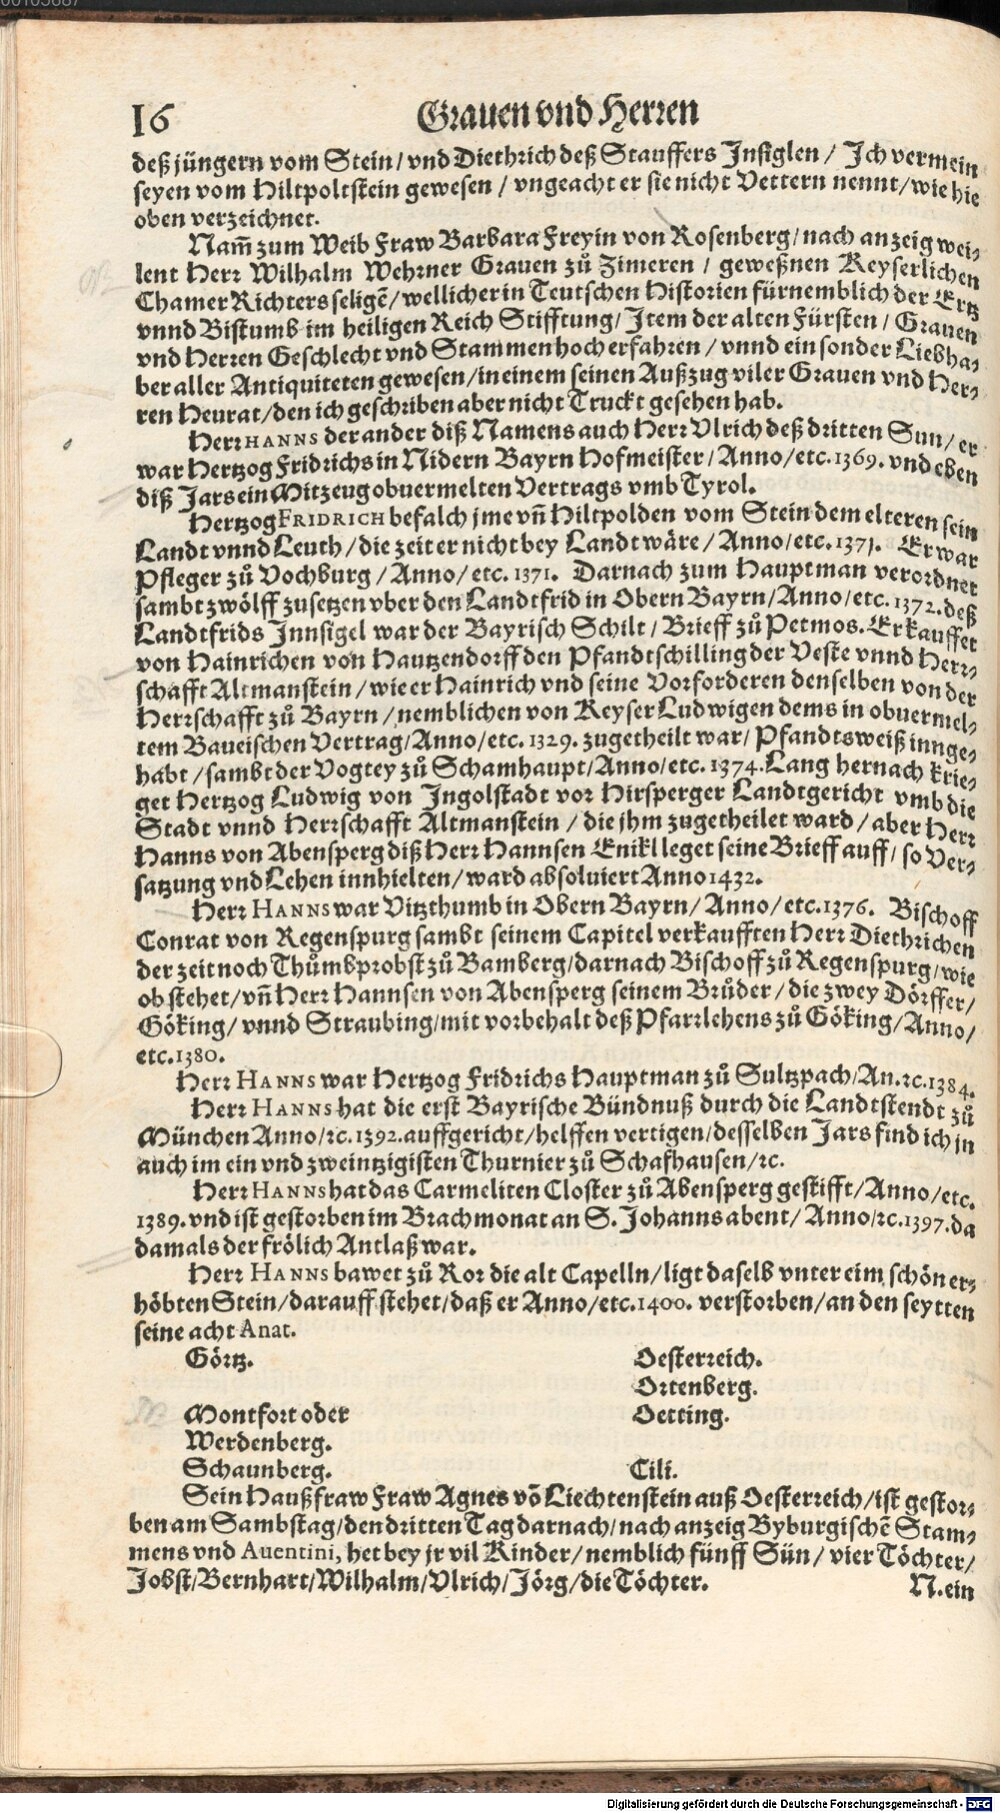 16 Grauen vnd Herren
deß jüngern vom Stein / vnd Diethrich deß Stauffers Insiglen / Ich vermein
seyen vom Hiltpoltstein gewesen / vngeacht er sie nicht Vettern nennt / wie hie
oben verzeichnet.
Nam̃ zum Weib Fraw Barbara Freyin von Rosenberg / nach anzeig wei⸗
lent Herr Wilhalm Wehrner Grauen zů Zimeren / geweßnen Keyserlichen
Chamer Richters seligẽ / wellicher in Teutschen Historien fürnemblich der Ertz
vnnd Bistumb im heiligen Reich Stifftung / Item der alten Fürsten / Grauen
vnd Herren Geschlecht vnd Stammen hoch erfahren / vnnd ein sonder Liebha⸗
ber aller Antiquiteten gewesen / in einem seinen Außzug viler Grauen vnd Her⸗
ren Heurat / den ich geschriben aber nicht Truckt gesehen hab.
Herr HANNS der ander diß Namens auch Herr Vlrich deß dritten Sun / er
war Hertzog Fridrichs in Nidern Bayrn Hofmeister / Anno / etc. 1369. vnd eben
diß Jars ein Mitzeug obuermelten Vertrags vmb Tyrol.
Hertzog FRIDRICH befalch jme vñ Hiltpolden vom Stein dem elteren sein
Landt vnnd Leuth / die zeit er nicht bey Landt wäre / Anno / etc. 1371. Er war
Pfleger zů Vochburg / Anno / etc. 1371. Darnach zum Hauptman verordnet
sambt zwölff zusetzen vber den Landtfrid in Obern Bayrn / Anno / etc. 1372. deß
Landtfrids Innsigel war der Bayrisch Schilt / Brieff zů Petmos. Er kauffet
von Hainrichen von Hautzendorff den Pfandtschilling der Veste vnnd Herr⸗
schafft Altmanstein / wie er Hainrich vnd seine Vorforderen denselben von der
Herrschafft zů Bayrn / nemblichen von Keyser Ludwigen dems in obuermel⸗
tem Baueischen Vertrag / Anno / etc. 1329. zugetheilt war / Pfandtsweiß innge⸗
habt / sambt der Vogtey zů Schamhaupt / Anno / etc. 1374. Lang hernach krie⸗
get Hertzog Ludwig von Ingolstadt vor Hirsperger Landtgericht vmb die
Stadt vnnd Herrschafft Altmanstein / die jhm zugetheilet ward / aber Herr
Hanns von Abensperg diß Herr Hannsen Enikl leget seine Brieff auff / so Ver⸗
satzung vnd Lehen innhielten / ward absoluiert Anno 1432.
Herr HANNS war Vitzthumb in Obern Bayrn / Anno / etc. 1376. Bischoff
Conrat von Regenspurg sambt seinem Capitel verkaufften Herr Diethrichen
der zeit noch Thůmbprobst zů Bamberg / darnach Bischoff zů Regenspurg / wie
ob stehet / vñ Herr Hannsen von Abensperg seinem Brůder / die zwey Dörffer /
Göking / vnnd Straubing / mit vorbehalt deß Pfarrlehens zů Göking / Anno /
etc. 1380.
Herr HANNS war Hertzog Fridrichs Hauptman zů Sultzpach / An. ꝛc. 1384.
Herr HANNS hat die erst Bayrische Bündnuß durch die Landtstendt zů
München Anno / ꝛc. 1392. auffgericht / helffen vertigen / desselben Jars find ich jn
auch im ein vnd zweintzigisten Thurnier zů Schafhausen / ꝛc.
Herr HANNS hat das Carmeliten Closter zů Abensperg gestifft / Anno / etc.
1389. vnd ist gestorben im Brachmonat an S. Johanns abent / Anno / ꝛc. 1397. da
damals der frölich Antlaß war.
Herr HANNS bawet zů Ror die alt Capelln / ligt daselb vnter eim schön er⸗
höbten Stein / darauff stehet / daß er Anno / etc. 1400. verstorben / an den seytten
seine acht Anat.
Görtz. Oesterreich.
Ortenberg.
Montfort oder Oetting.
Werdenberg.
Schaunberg. Cili.
Sein Haußfraw Fraw Agnes võ Liechtenstein auß Oesterreich / ist gestor⸗
ben am Sambstag / den dritten Tag darnach / nach anzeig Byburgischẽ Stam⸗
mens vnd Auentini, het bey jr vil Kinder / nemblich fünff Sün / vier Töchter /
Jobst / Bernhart / Wilhalm / Vlrich / Jörg / die Töchter. N. ein
Digitalisierung gefördert durch die Deutsche Forschungsgemeinschaft - DFG